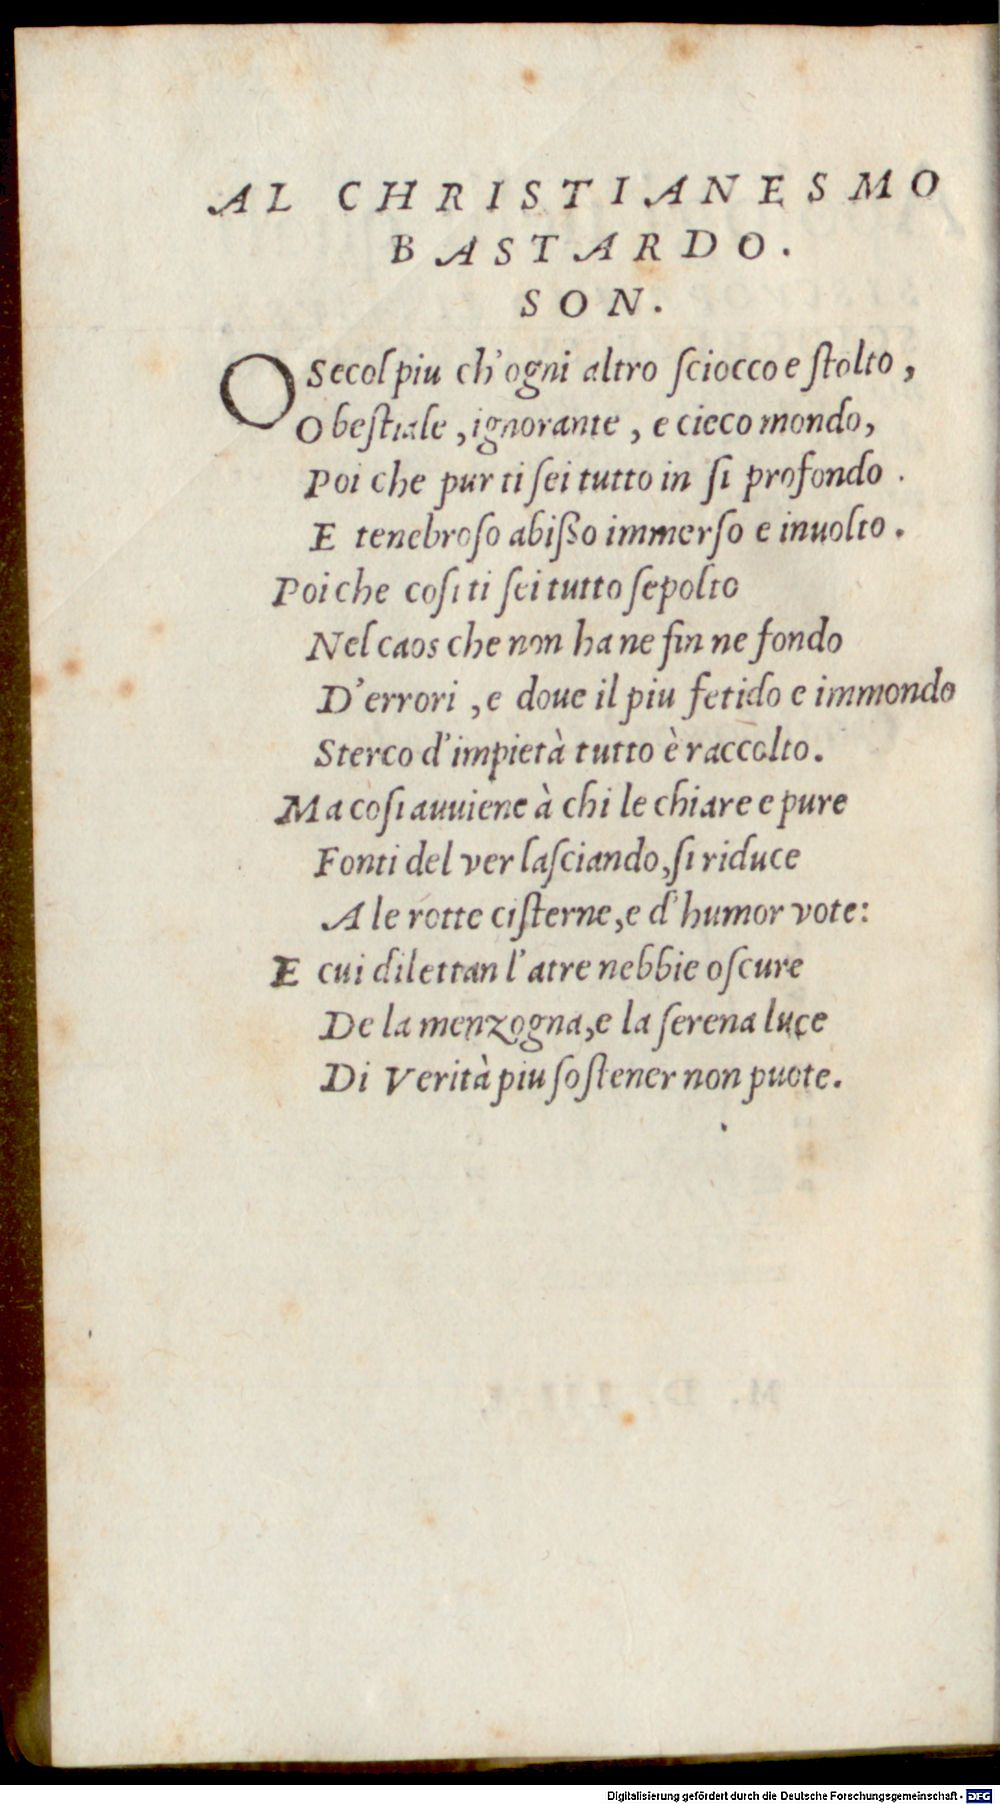 AL CHRISTIANESMO
BASTARDO.
SON.
O Secol piu ch'ogni altro ſciocco e ſtolto,
O beſtiale, ignorante, e cieco mondo,
Poi che pur ti ſei tutto in ſi profondo.
E tenebroſo abißo immerſo e inuolto.
Poi che coſi ti ſei tutto ſepolto
Nel caos che non ha ne fin ne fondo
D'errori, e doue il piu fetido e immondo
Sterco d'impietà tutto è raccolto.
Ma coſi auuiene à chi le chiare e pure
Fonti del ver laſciando, ſi riduce
A le rotte ciſterne, e d'humor vote:
E cui dilettan l'atre nebbie oſcure
De la menzogna, e la ſerena luce
Di Verità piu ſoſtener non puote.
Digitalisierung gefördert durch die Deutsche Forschungsgemeinschaft - DFG